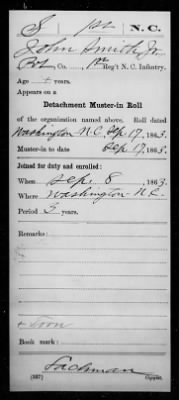 S 1st N. C.
John Smith, Jr.
Pvt, Co. , 1st Reg't N. C. Infantry.
Age years.
Appears on a
Detachment Muster-in Roll
of the organization named above. Roll dated
Washington N.C. Sep 17, 1863.
Muster-in to date Sep 17, 1863.
Joined for duty and enrolled:
When Sep. 8, 1863.
Where Washington N.C.
Period 3 years.
Remarks:
Book mark:
(337) Copyist.